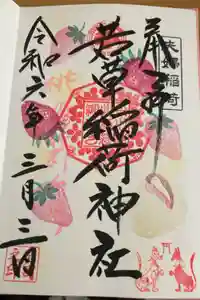 奉拝
夫婦稲荷
若草稲荷神社
令和六年三月三日